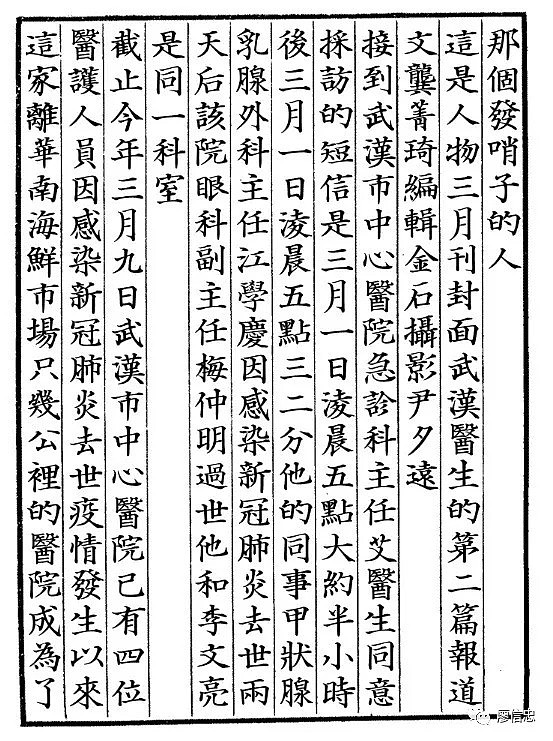 那個發哨子的人
這是人物三月刊封面武漢醫生的第二篇報道
文龔菁琦編輯金石攝影尹夕遠
接到武漢市中心醫院急診科主任艾醫生同意
採訪的短信是三月一日淩晨五點大約半小時
後三月一日淩晨五點三二分他的同事甲狀腺
乳腺外科主任江學慶因感染新冠肺炎去世兩
天后該院眼科副主任梅仲明過世他和李文亮
是同一科室
截止今年三月九日武漢市中心醫院已有四位
醫護人員因感染新冠肺炎去世疫情發生以來
這家離華南海鮮市場只幾公裡的醫院成為了
廖信忠